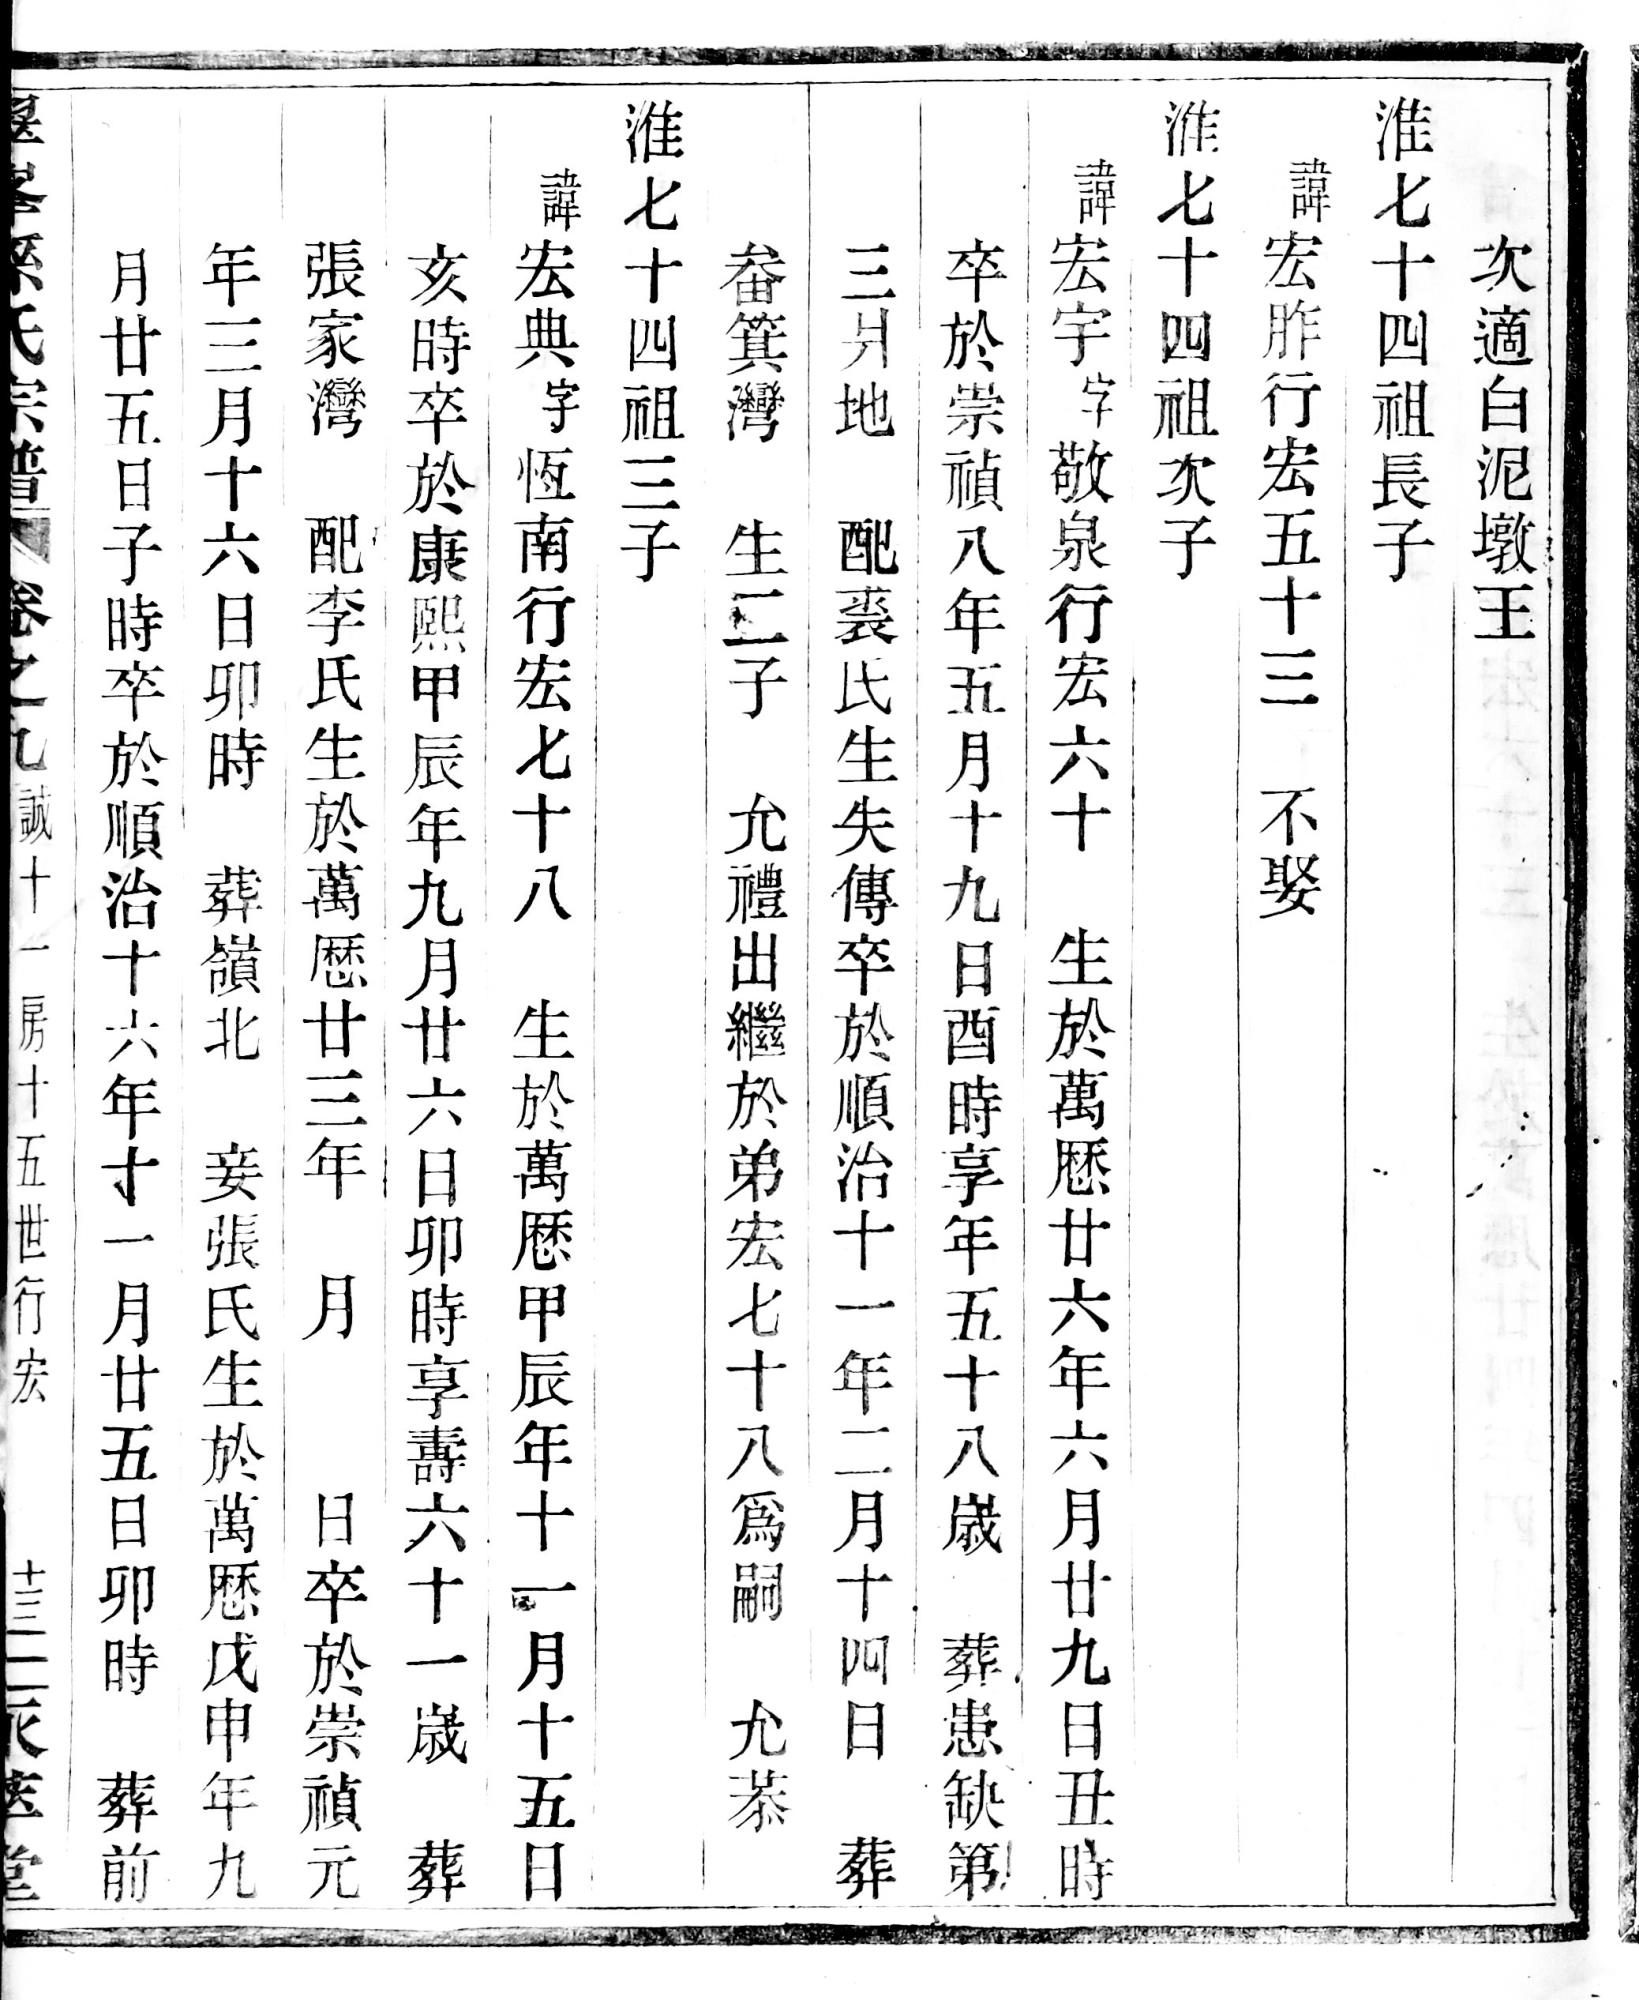 次適白泥墩王
淮七十四祖長子
諱宏胙行宏五十三　不娶
淮七十四祖次子
諱宏宇字敬泉行宏六十　生於萬厯廿六年六月廿九日丑時
卒於崇禎八年五月十九日酉時享年五十八歲　葬患缺第
三爿地　配裘氏生失傳卒於順治十一年二月十四日　葬
畚箕灣　生二子　允禮出繼於弟宏七十八爲嗣　允恭
淮七十四祖三子
諱宏典字恆南行宏七十八　生於萬厯甲辰年十一月十五日
亥時卒於康熙甲辰年九月廿六日卯時享壽六十一歲　葬
張家灣　配李氏生於萬厯廿三年　月　日卒於崇禎元
年三月十六日卯時　葬嶺北　妾張氏生於萬厯戊申年九
月廿五日子時卒於順治十六年十一月廿五日卯時　葬前
孫氏宗譜　卷之九　誠十一房十五世行宏　堂